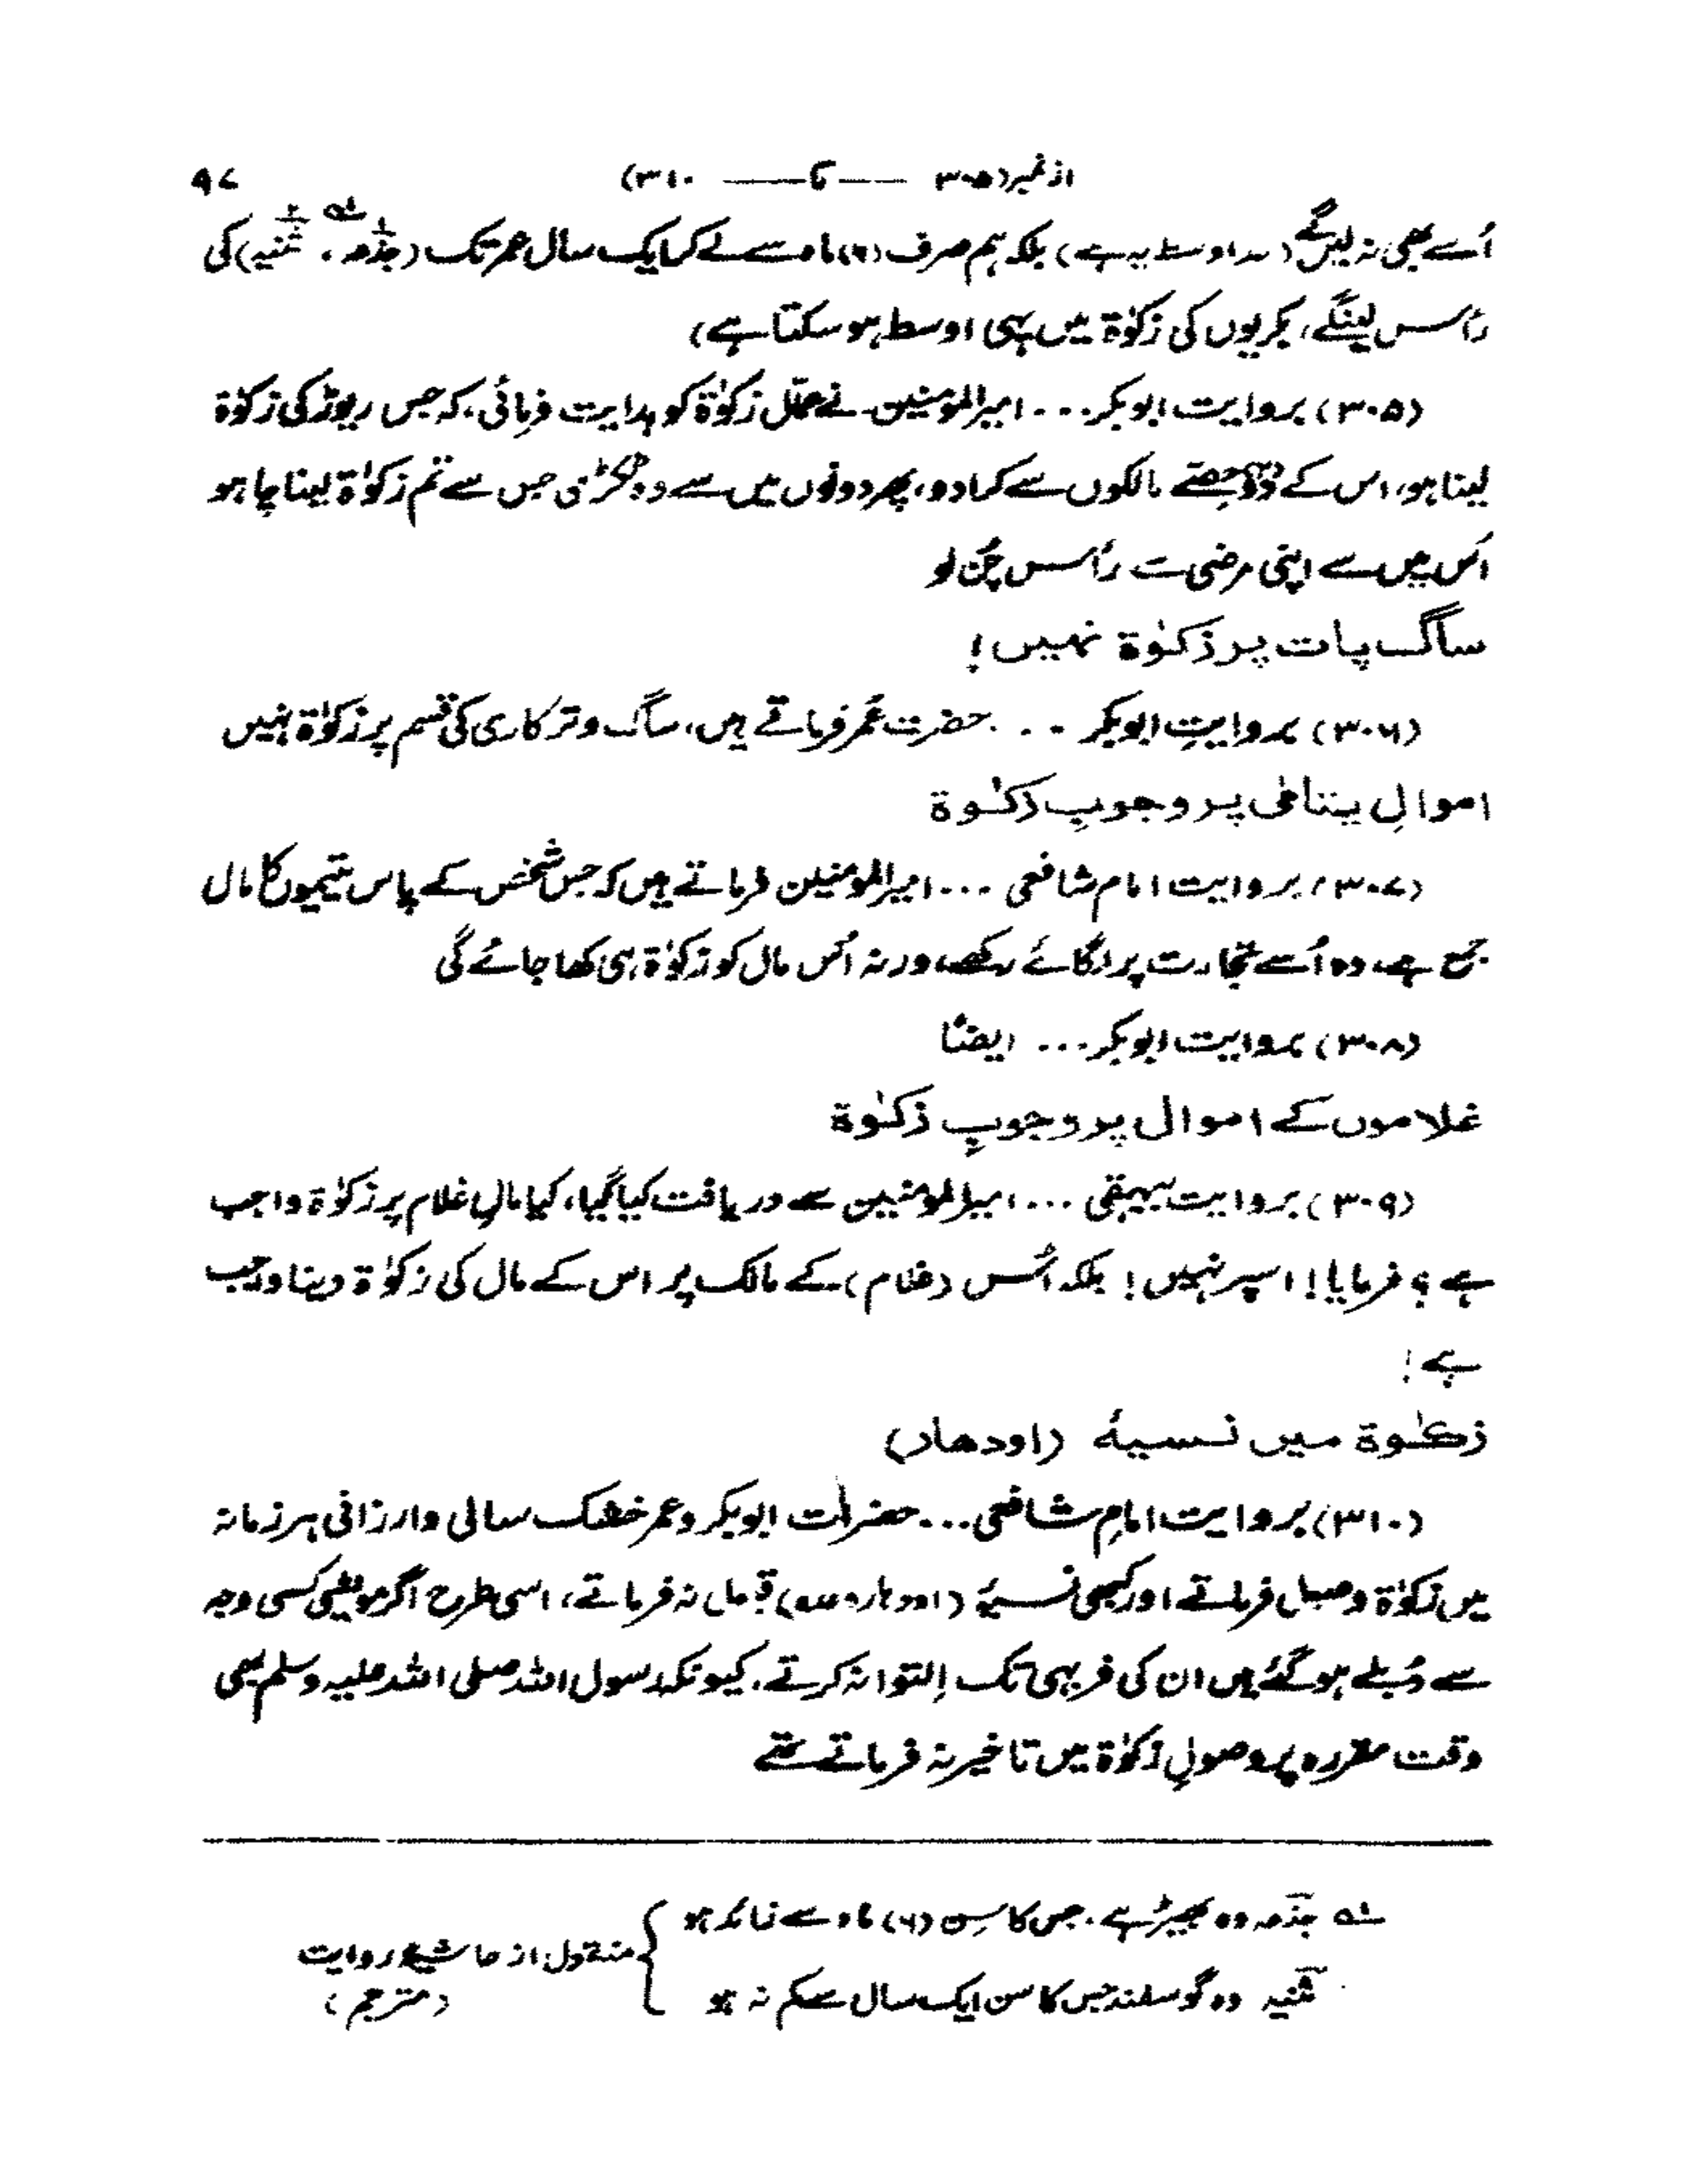 از نمبر (۳۰۵ —— تا —— ۳۱۰) ۹۷
اُسے بھی نہ لیں گے ( اوسط یہ ہے) بلکہ ہم صرف (۶) ماہ سے لے کر ایک سال عمر تک (جذعہ، ثنیہ) کی
رأس لینگے، بکریوں کی زکوٰۃ میں یہی اوسط ہو سکتا ہے)
(۳۰۵) بروایت ابوبکر... امیرالمؤمنین نے عمّال زکوٰۃ کو ہدایت فرمائی، کہ جس ریوڑ کی زکوٰۃ
لینا ہو، اس کے دو حصّے مالکوں سے کرا دو، پھر دونوں میں سے وہ ٹکڑی جس سے تم زکوٰۃ لینا چاہو
اس میں سے اپنی مرضی سے رأس چُن لو
ساگ پات پر زکوٰۃ نہیں!
(۳۰۶) بروایتِ ابوبکر ... حضرت عُمر فرماتے ہیں، ساگ و ترکاری کی قسم پر زکوٰۃ نہیں
اموالِ یتامٰی پر وجوبِ زکوٰۃ
(۳۰۷) بروایت امام شافعی ... امیرالمؤمنین فرماتے ہیں کہ جس شخص کے پاس یتیموں کا مال
جمع ہے، وہ اُسے تجارت پر لگائے رکھے، ورنہ اُس مال کو زکوٰۃ ہی کھا جائے گی
(۳۰۸) بروایت ابوبکر... ایضًا
غلاموں کے اموال پر وجوبِ زکوٰۃ
(۳۰۹) بروایت بیہقی ... امیرالمؤمنین سے دریافت کیا گیا، کیا مالِ غلام پر زکوٰۃ واجب
ہے؟ فرمایا! اسپر نہیں! بلکہ اُس (غلام) کے مالک پر اس کے مال کی زکوٰۃ دینا واجب
ہے!
زکوٰۃ میں نسیۂ (اودھار)
(۳۱۰) بروایت امامِ شافعی... حضرات ابوبکر و عمر خشک سالی و ارزانی ہر زمانہ
میں زکوٰۃ وصول فرماتے اور کبھی نسیۂ (اودھار وعدہ) قبول نہ فرماتے، اسی طرح اگر مویشی کسی وجہ
سے دُبلے ہو گئے ہیں ان کی فربہی تک اِلتوا نہ کرتے، کیونکہ رسول اللہ صلی اللہ علیہ وسلم بھی
وقت مقررہ پر وصولِ زکوٰۃ میں تاخیر نہ فرماتے تھے
لہ جذعہ وہ بھیڑ ہے، جس کا سِن (۶) ماہ سے زائد ہو
ثنیہ وہ گوسفند جس کا سن ایک سال سے کم نہ ہو
منقول از حاشیہ روایت
(مترجم)